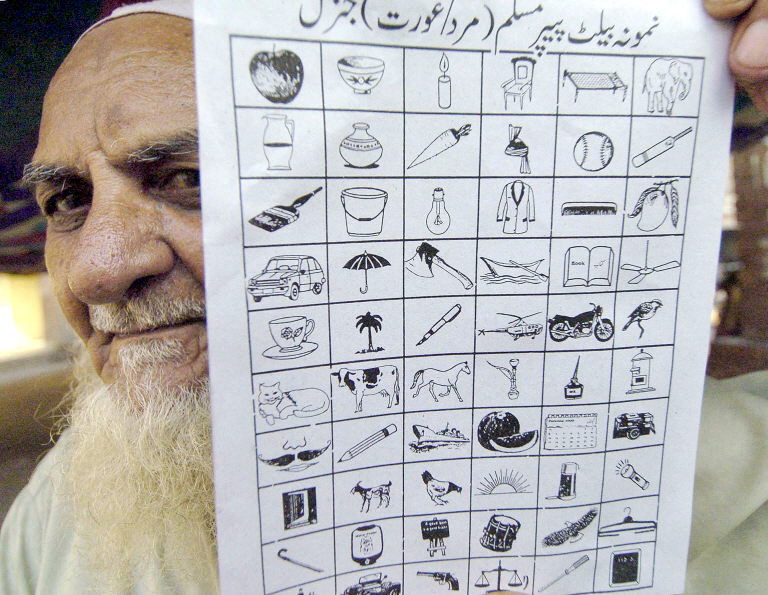 نمونہ بیلٹ پیپر مسلم (مرد/عورت) جنرل
Book